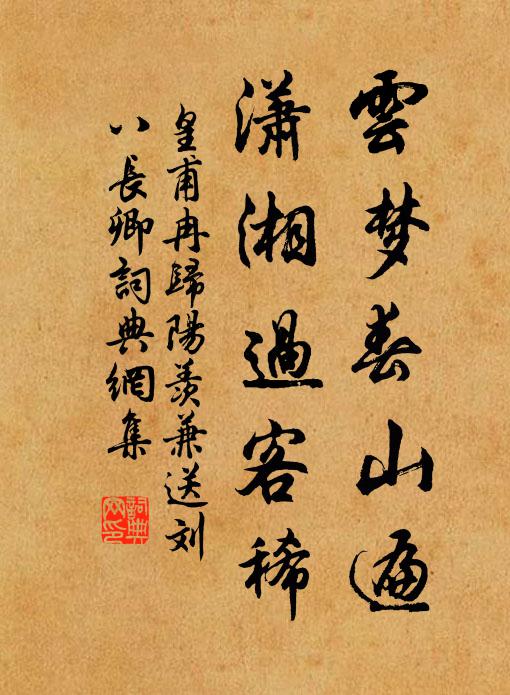 雲梦春山遍
瀟湘過客稀
皇甫冉歸陽羨兼送刘
八長卿詞典網集
詞典網印